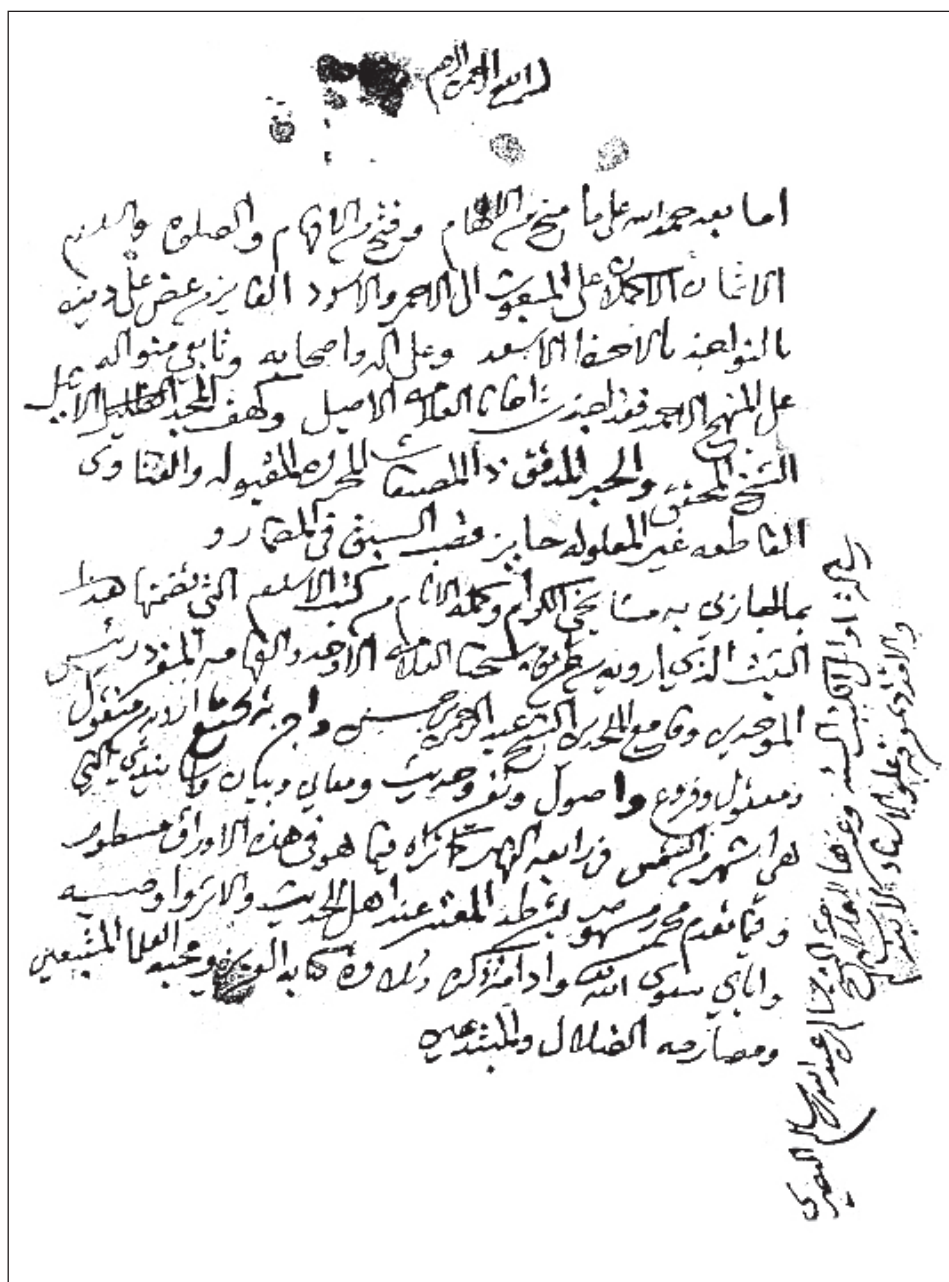 بسم الله الرحمن الرحيم
اما بعد حمد الله على ما منح من الالهام وفتح من الافهام والصلوة والسلام
الاتمان الاكملان على المبعوث الى الاحمر والاسود القايل من عض على دينه
بالنواجذ الاسعد وعلى اله واصحابه وتابعي منواله
على المنهج الاحمد فقد اجزت العلامه الاصيل وكهف المجد الاثيل
الشيخ المحقق والحبر المدقق ذا المصنفات المحرره المقبوله والفتاوى
القاطعه غير المعلوله حايز قصب السبق في المضمار و
بما اجازني به مشايخي الكرام وكملة الانام من كتب الاسلام التي تضمنها هذا
الثبت الذي ارويه عن شيخنا العلامه الاوحد والفهامه المفرد رئيس
الموحدين وقامع الملحدين الشيخ عبد الرحمن بن حسن واجزته بجميع ما ارويه من منقول
ومعقول وفروع واصول وحديث ومعاني وبيان واسانيدي التي
هي اشهر من الشمس في رابعة النهار كما تراه فيما هو في هذه الاوراق مسطور
وفيما تقدم بشرطه المعتبر عند اهل الحديث والاثر واوصيه
واياي بتقوى الله وادامة ذكره وتلاوة كتابه العزيز ومحبة العلما المتبعين
ومصارمة الضلال والمبتدعين
اوائل الكتب السته وغيرها عبد الله بن سالم البصري